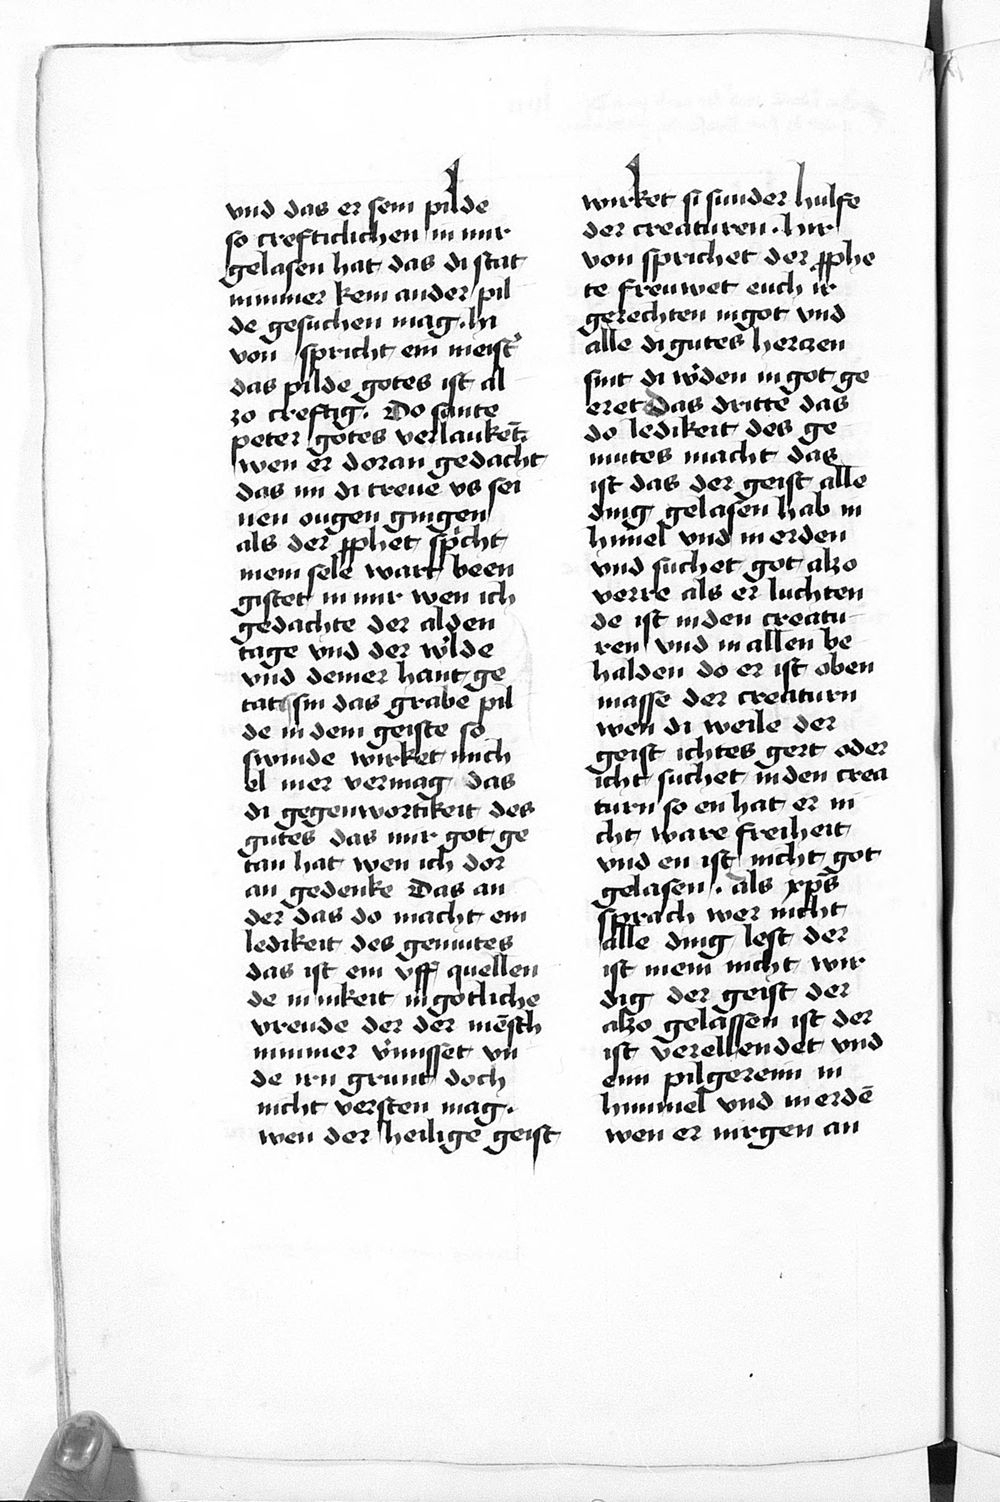 vnd das er sein pilde
so crefticlichen in mir
gelasen hat das di stat
nimmer kein ander pil
de gesuchen mag. hi
von spricht ein meist'
das pilde gotes ist al
zo creftig. Do sante
peter gotes verlaukēt.
wen er doran gedacht
das im di treue vs sei
nen ougen gingen
als der pphet sp'cht
mein sele wart been
gistet in mir wen ich
gedachte der alden
tage vnd der w'lde
vnd deiner hant ge
tat sin das grabe pil
de in dem geiste so
swinde wirket mich
bl mer vermag das
di gegenwortikeit des
gutes das mir got ge
tan hat wen ich dor
an gedenke Das an
der das do macht ein
ledikeit des gemutes
das ist ein vff quellen
de inikeit in gotliche
vreude der der mēsch
nimmer v'misset vn
de irn grunt doch
nicht versten mag.
wen der heilige geist
wirket si sunder hulfe
der creaturen. hir
von sprichet der pphe
te freuwet euch ir
gerechten in got vnd
alle di gutes herczen
sint di w'den in got ge
eret Das dritte das
do ledikeit des ge
mutes macht das
ist das der geist alle
ding gelasen hab in
himel vnd in erden
vnd suchet got alzo
verre als er luchten
de ist in den creatu
ren vnd in allen be
halden do er ist oben
masse der creaturn
wen di weile der
geist ichtes gert oder
icht suchet in den crea
turn so en hat er ni
cht ware freiheit
vnd en ist nicht got
gelasen. als xp̄s
sprach wer nicht
alle ding lest der
ist mein nicht wir
dig der geist der
alzo gelassen ist der
ist verellendet vnd
ein pilgereim in
himmel vnd in erdē
wen er nirgen an